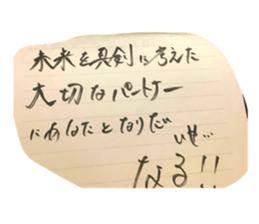 未来を真剣に考えた
大切なパートナー
にあなたとなりたい
いぜ…
なる!!